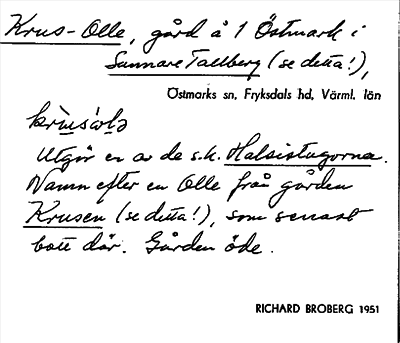 Krus-Olle, gård å 1 Östmark i
Sannare Tallberg (se detta!),
Östmarks sn, Fryksdals hd, Värml. län
Utgör en av de s.k. Halsistugorna.
Namn efter en Olle från gården
Krusen (se detta!), som senast
bott där. Gården öde.
RICHARD BROBERG 1951